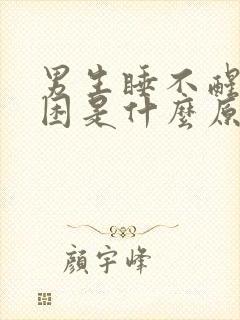 男生睡不醒
困是什麼原
顏宇峰